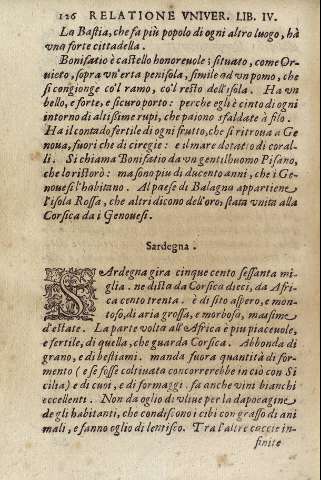 126 RELATIONE VNIVER. LIB. IV.
La Bastia, che fa più popolo di ogni altro luogo, hà
vna forte cittadella.
Bonifatio è castello honoreuole; situato, come Or-
uieto, sopra vn'erta penisola, simile ad vn pomo, che
si congionge co'l ramo, co'l resto dell'isola. Ha vn
bello, e forte, e sicuro porto: perche egli è cinto di ogni
intorno di altissime rupi, che paiono sfaldate à filo.
Ha il contado fertile di ogni frutto, che si ritroua a Ge
noua, fuori che di ciregie: e il mare dotato di coral-
li. Si chiama Bonifatio da vn gentilhuomo Pisano,
che lo ristorò: ma sono piu di ducento anni, che i Ge-
nouesi l'habitano. Al paese di Balagna appartiene
l'isola Rossa, che altri dicono dell'oro; stata vnita alla
Corsica da i Genouesi.
Sardegna.
SArdegna gira cinque cento sessanta mi-
glia. ne dista da Corsica dieci, da Afri
ca cento trenta. è di sito aspero, e mon-
toso, di aria grossa, e morbosa, massime
d'estate. La parte volta all'Africa è piu piaceuole,
e fertile, di quella, che guarda Corsica. Abbonda di
grano, e di bestiami. manda fuora quantità di for-
mento (e se fosse coltiuata concorrerebbe in ciò con Si
cilia) e di cuoi, e di formaggi. fa anche vini bianchi
eccellenti. Non da oglio di vliue per la dapocagine
de gli habitanti, che condiscono i cibi con grasso di ani
mali, e fanno oglio di lentisco. Tra l'altre caccie in-
finite